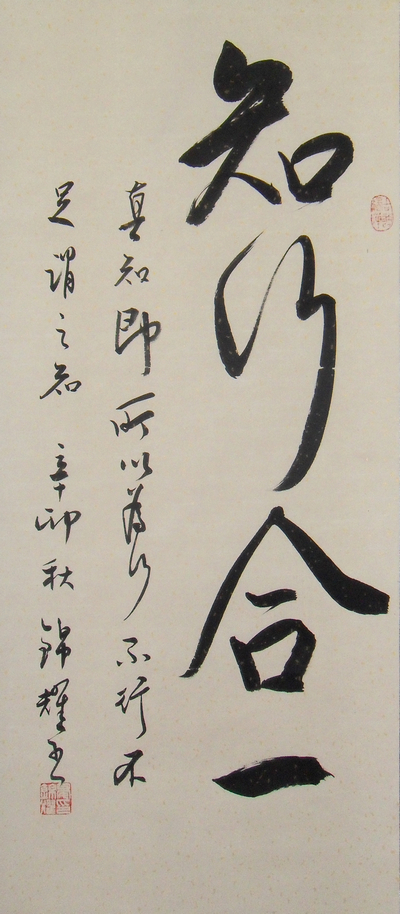 知行合一
真知即所以為行不行不
足謂之知 辛卯秋 錦耀書